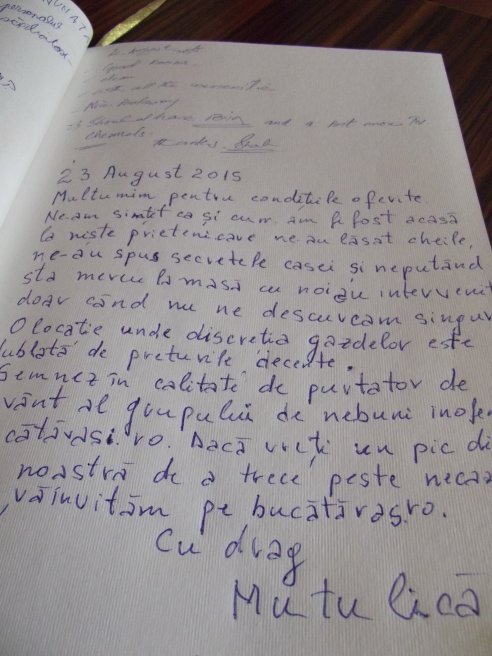 personalul
- Good
- clean
- all the
- Nice
and a
chemals.
23 August 2015
Multumim pentru condițiile oferite.
Ne-am simțit ca și cum am fi fost acasă
la niște prieteni care ne-au lăsat cheile,
ne-au spus secretele casei și neputând
sta mereu la masă cu noi au intervenit
doar când nu ne descurcam singuri
O locație unde discreția gazdelor este
dublată de prețurile decente.
Semnez în calitate de purtător de
vânt al grupului de nebuni inofe
cătărași.ro. Dacă vreți un pic di
noastră de a trece peste necaz
vă invităm pe bucătăraș.ro.
Cu drag
Mutulică